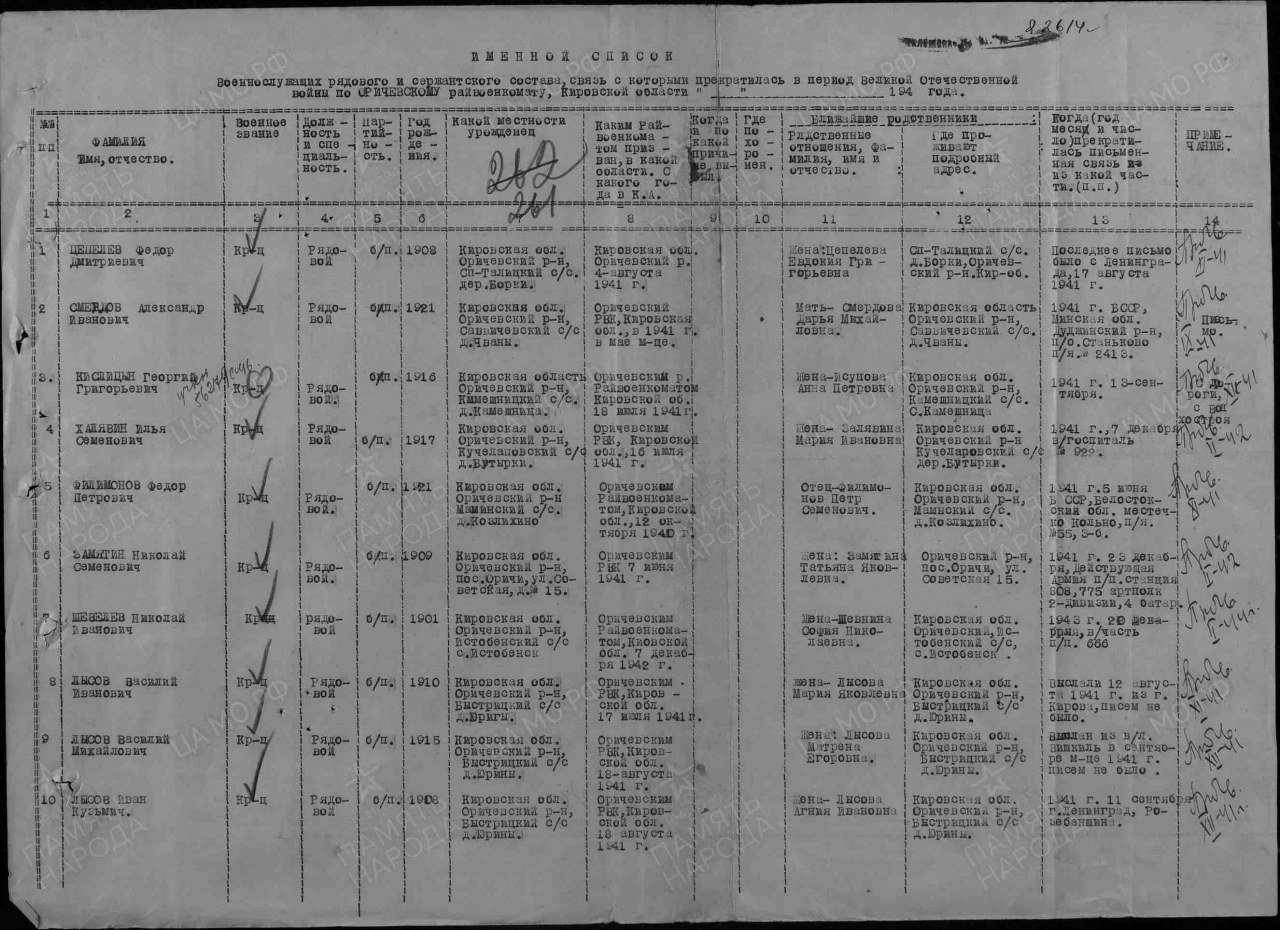 22614
ИМЕННОЙ СПИСОК
Военнослужащих рядового и сержантского состава, связь с которыми прекратилась в период Великой Отечественной
войны по ОРИЧЕВСКОМУ райвоенкомату, Кировской области " " 194 года.
№№ пп
ФАМИЛИЯ Имя, отчество.
Военное звание
Долж-ность и спе-циаль-ность.
Пар-тий-но-сть.
Год рож-де-ния.
Какой местности урожденец
Каким Рай-военкома-том приз-ван, в какой области. С какого го-да в К.А.
Когда и по какой причи-не, вы-был.
Где по-хо-ро-нен.
Ближайшие родственники
Рлдственные отношения, фа-милия, имя и отчество.
Где про-живают подробный адрес.
Когда(год месяц и чис-ло)прекрати-лась письмен-ная связь из из какой час-ти.(п.п.)
ПРИМЕ-ЧАНИЕ.
262
261
1 2 3 4 5 6 8 9 10 11 12 13 14
1 ЦЕПЕЛЕВ Федор Дмитриевич
Кр-ц
Рядо-вой
б/п.
1908
Кировская обл. Оричевский р-н, Сп-Талицкий с/с. дер.Борки.
Кировская обл. Оричевский р. 4-августа 1941 г.
Жена:Цепелева Евдокия Гри-горьевна
Сп-Талицкий с/с. д.Борки,Оричев-ский р-н.Кир-об.
Последнее письмо было с Ленингра-да,17 августа 1941 г.
2 СМЕРДОВ Александр Иванович
Кр-ц
Рядо-вой
б/п.
1921
Кировская обл. Оричевский р-н, Саввичевский с/с д.Чваны.
Оричевский РВК,Кировская обл.,в 1941 г. в мае м-це.
Мать- Смердова Дарья Михай-ловна.
Кировская область Оричевский р-н, Саввичевский с/с. д.Чваны.
1941 г. БССР, Минская обл. Дуджинский р-н, п/о.Станьково п/я.№ 2413.
Пись-мо.
3. КИСЛИЦЫН Георгий Григорьевич
Кр-ц
Рядо-вой.
б/п.
1916
Кировская область Оричевский р-н, Кммешницкий с/с. д.Камешница.
Оричевский р. Райвоенкоматом Кировской об. 18 июля 1941г.
Жена-Исупова Анна Петровна
Кировская обл. Оричевский р-н, Камешницкий с/с. С.Камешница
1941 г. 13-сен-тября.
4 ХАЛЯВИН Илья Семенович
Кр-ц
Рядо-вой
б/п.
1917
Кировская обл. Оричевский р-н, Кучелаповский с/с д.Бутырки.
Оричевским РВК, Кировской обл.,16 июля 1941 г.
Жена- Залявина Мария Ивановна
Кировская обл. Оричевский р-н Кучеларовский с/с дер.Бутырки.
1941 г.,7 декабря в/госпиталь № 922.
5 ФИЛИМОНОВ Федор Петрович
Кр-ц
Рядо-вой.
б/п.
1921
Кировская обл. Оричевский р-н Маминский с/с. д.Козлихино
Оричевским Райвоенкома-том,Кировской обл.,12 ок-тября 1940 г.
Отец-Филимо-нов Петр Семенович.
Кировская обл. Оричевский р-н, Мамнский с/с. д.Козлихино.
1941 г.5 июня В ССР,Белосток-ский обл. местеч-ко Кольно,п/я. №55,3-б.
6 ЗАМЯТИН Николай Семенович
Кр-ц
Рядо-вой.
б/п.
1909
Кировская обл. Оричевский р-н, пос.Оричи,ул.Со-ветская,д.№ 15.
Оричевским РВК 7 июня 1941 г.
Жена: Замятина Татьяна Яков-левна.
Оричевский р-н, пос.Оричи, ул. Советская 15.
1941 г. 23 декаб-ря,Действующая Армия п/п.станция 808,775 артполк 2-дивизии,4 батар.
7 ШЕВЕЛЕВ Николай Иванович
Кр-ц
рядо-вой
б/п.
1901
Кировская обл. Оричевский р-н, Истобенский с/с с.Истобенск
Оричевским Райвоенкома-том,Кировской обл. 7 декаб-ря 1942 г.
Жена-Шевнина София Нико-лаевна.
Кировская обл. Оричевский,Ис-тобенский с/с, с.Истобенск .
1943 г. 20 дека-бря,в/часть п/п. 666
8 ЛЫСОВ Василий Иванович
Кр-ц
Рядо-вой
б/п.
1910
Кировская обл. Оричевский р-н, Быстрицкий с/с д.Юриги.
Оричевским РВК,Киров-ской обл. 17 июля 1941г.
жена- Лысова Мария Яковлевна
Кировская обл. Оричевский р-н, Быстрицкий с/с д.Юрины.
Выслали 12 авгус-та 1941 г. из г. Кирова,писем не было.
9 ЛЫСОВ Василий Михайлович
Кр-ц
Рядо-вой
б/п.
1915
Кировская обл. Оричевский р-н, Быстрицкий с/с д.Юрины.
Оричевским РВК,Киров-ской обл. 18-августа 1941 г.
Жена: Лысова Матрена Егоровна.
Кировская обл. Оричевский р-н, Быстрицкий с/с д.Юрины.
Выслан из в/л. Вишкиль в сентяо-ре м-це 1941 г. писем не было .
10 ЛЫСОВ Иван Кузьмич.
Кр-ц
Рядо-вой
б/п.
1908
Кировская обл. Оричевский р-н, Быстрицкий с/с д.Юрины.
Оричевским РВК,Киров-ской обл. 18 августа 1941 г.
Жена- Лысова Агния Ивановна
Кировская обл. Оричевский р-н, Быстрицкий с/с д.Юрины.
1941 г. 11 сентября г.Ленинград, Ро-зебеншина.